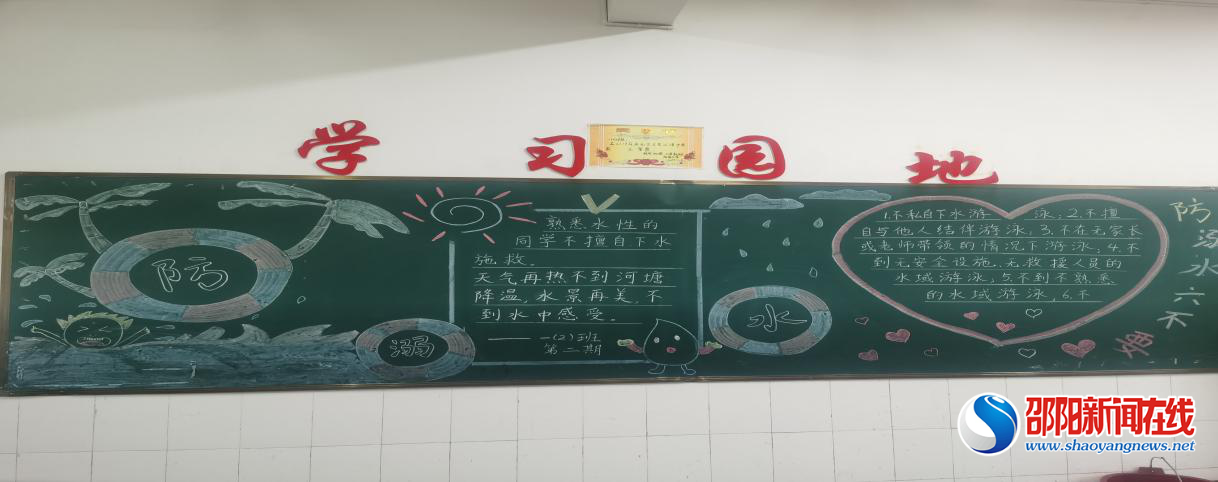 学习园地
防
溺
水
熟悉水性的
同学不擅自下水
施救。
天气再热不到河塘
降温，水景再美，不
到水中感受。
——一(2)班
第二期
1.不私自下水游 泳；2.不擅
自与他人结伴游泳；3.不在无家长
或老师带领的情况下游泳，4.不
到无安全设施、无救援人员的
水域游泳；5.不到不熟悉
的水域游泳，6.不
防
溺
水
六
不
要
邵阳新闻在线
www.shaoyangnews.net